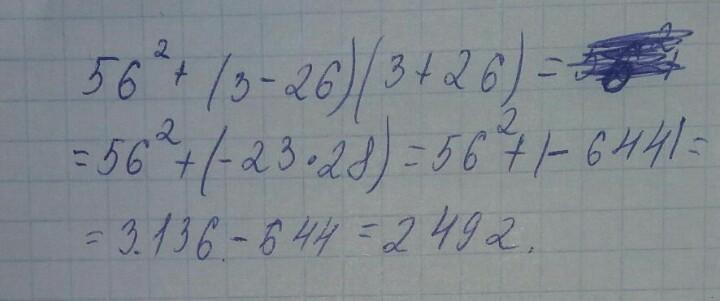 56² + (3 - 26)(3 + 26) =
= 56² + (-23 · 28) = 56² + (- 644) =
= 3.136 - 644 = 2 492.